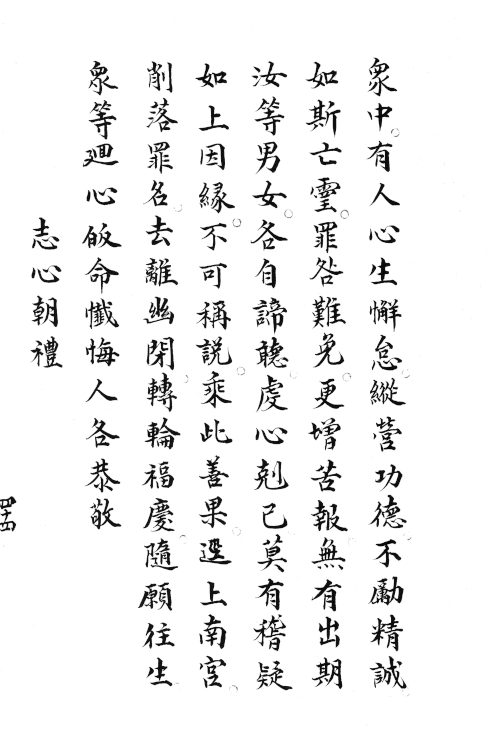 衆中有人心生懈怠縱營功德不勵精誠
如斯亡靈罪咎難免更增苦報無有出期
汝等男女各自諦聽虔心剋己莫有稽疑
如上因緣不可稱說乘此善果遷上南宮
削落罪名去離幽閉轉輪福慶隨願往生
衆等廻心皈命懺悔人各恭敬
志心朝禮
四十四